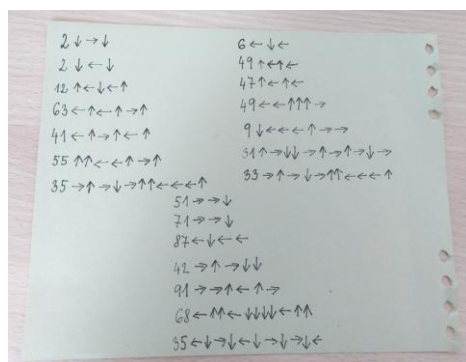 2 ↓ → ↓
2 ↓ ← ↓
12 ↑ ← ↓ ← ↑
63 ← ↑ ← ↑ → ↑
41 ← ↑ → ↑ ← ↑
55 ↑ ↑ ← ← ↑ → ↑
35 → ↑ → ↓ → ↑ ↑ ← ← ← ↑
6 ← ↓ ←
49 ↑ ← ↑ ←
47 ↑ ← ↑ ←
49 ← ← ↑ ↑ ↑ →
9 ↓ ← ← ← ↑ → →
31 ↑ → ↓ ↓ → ↑ → ↑ → ↓ →
33 → ↑ → ↓ → ↑ ↑ ← ← ← ↑
51 → → ↓
71 → → ↓
87 ← ↓ ← ←
42 → ↑ → ↓ ↓
91 → → ↑ ← ↑ →
68 ← ↑ ↑ ← ↓ ↓ ↓ ↓ ← ↑ ↑
35 ← ↓ → ↓ ← ↓ → ↓ → ↓ ←